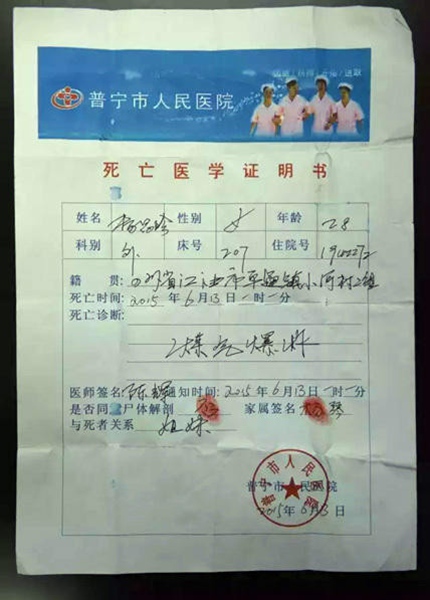 普宁市人民医院
死亡医学证明书
姓名 性别 女 年龄 28
科别 外 床号 207 住院号
籍贯: 四川省江油市 镇小河村2组
死亡时间: 2015年6月13日一时一分
死亡诊断:
煤气爆炸
医师签名: 陈辉 通知时间: 2015年6月13日一时一分
是否同 尸体解剖 家属签名 琴
与死者关系 姐妹
普宁市人民医院
普宁市 民医院
2015年6月13日